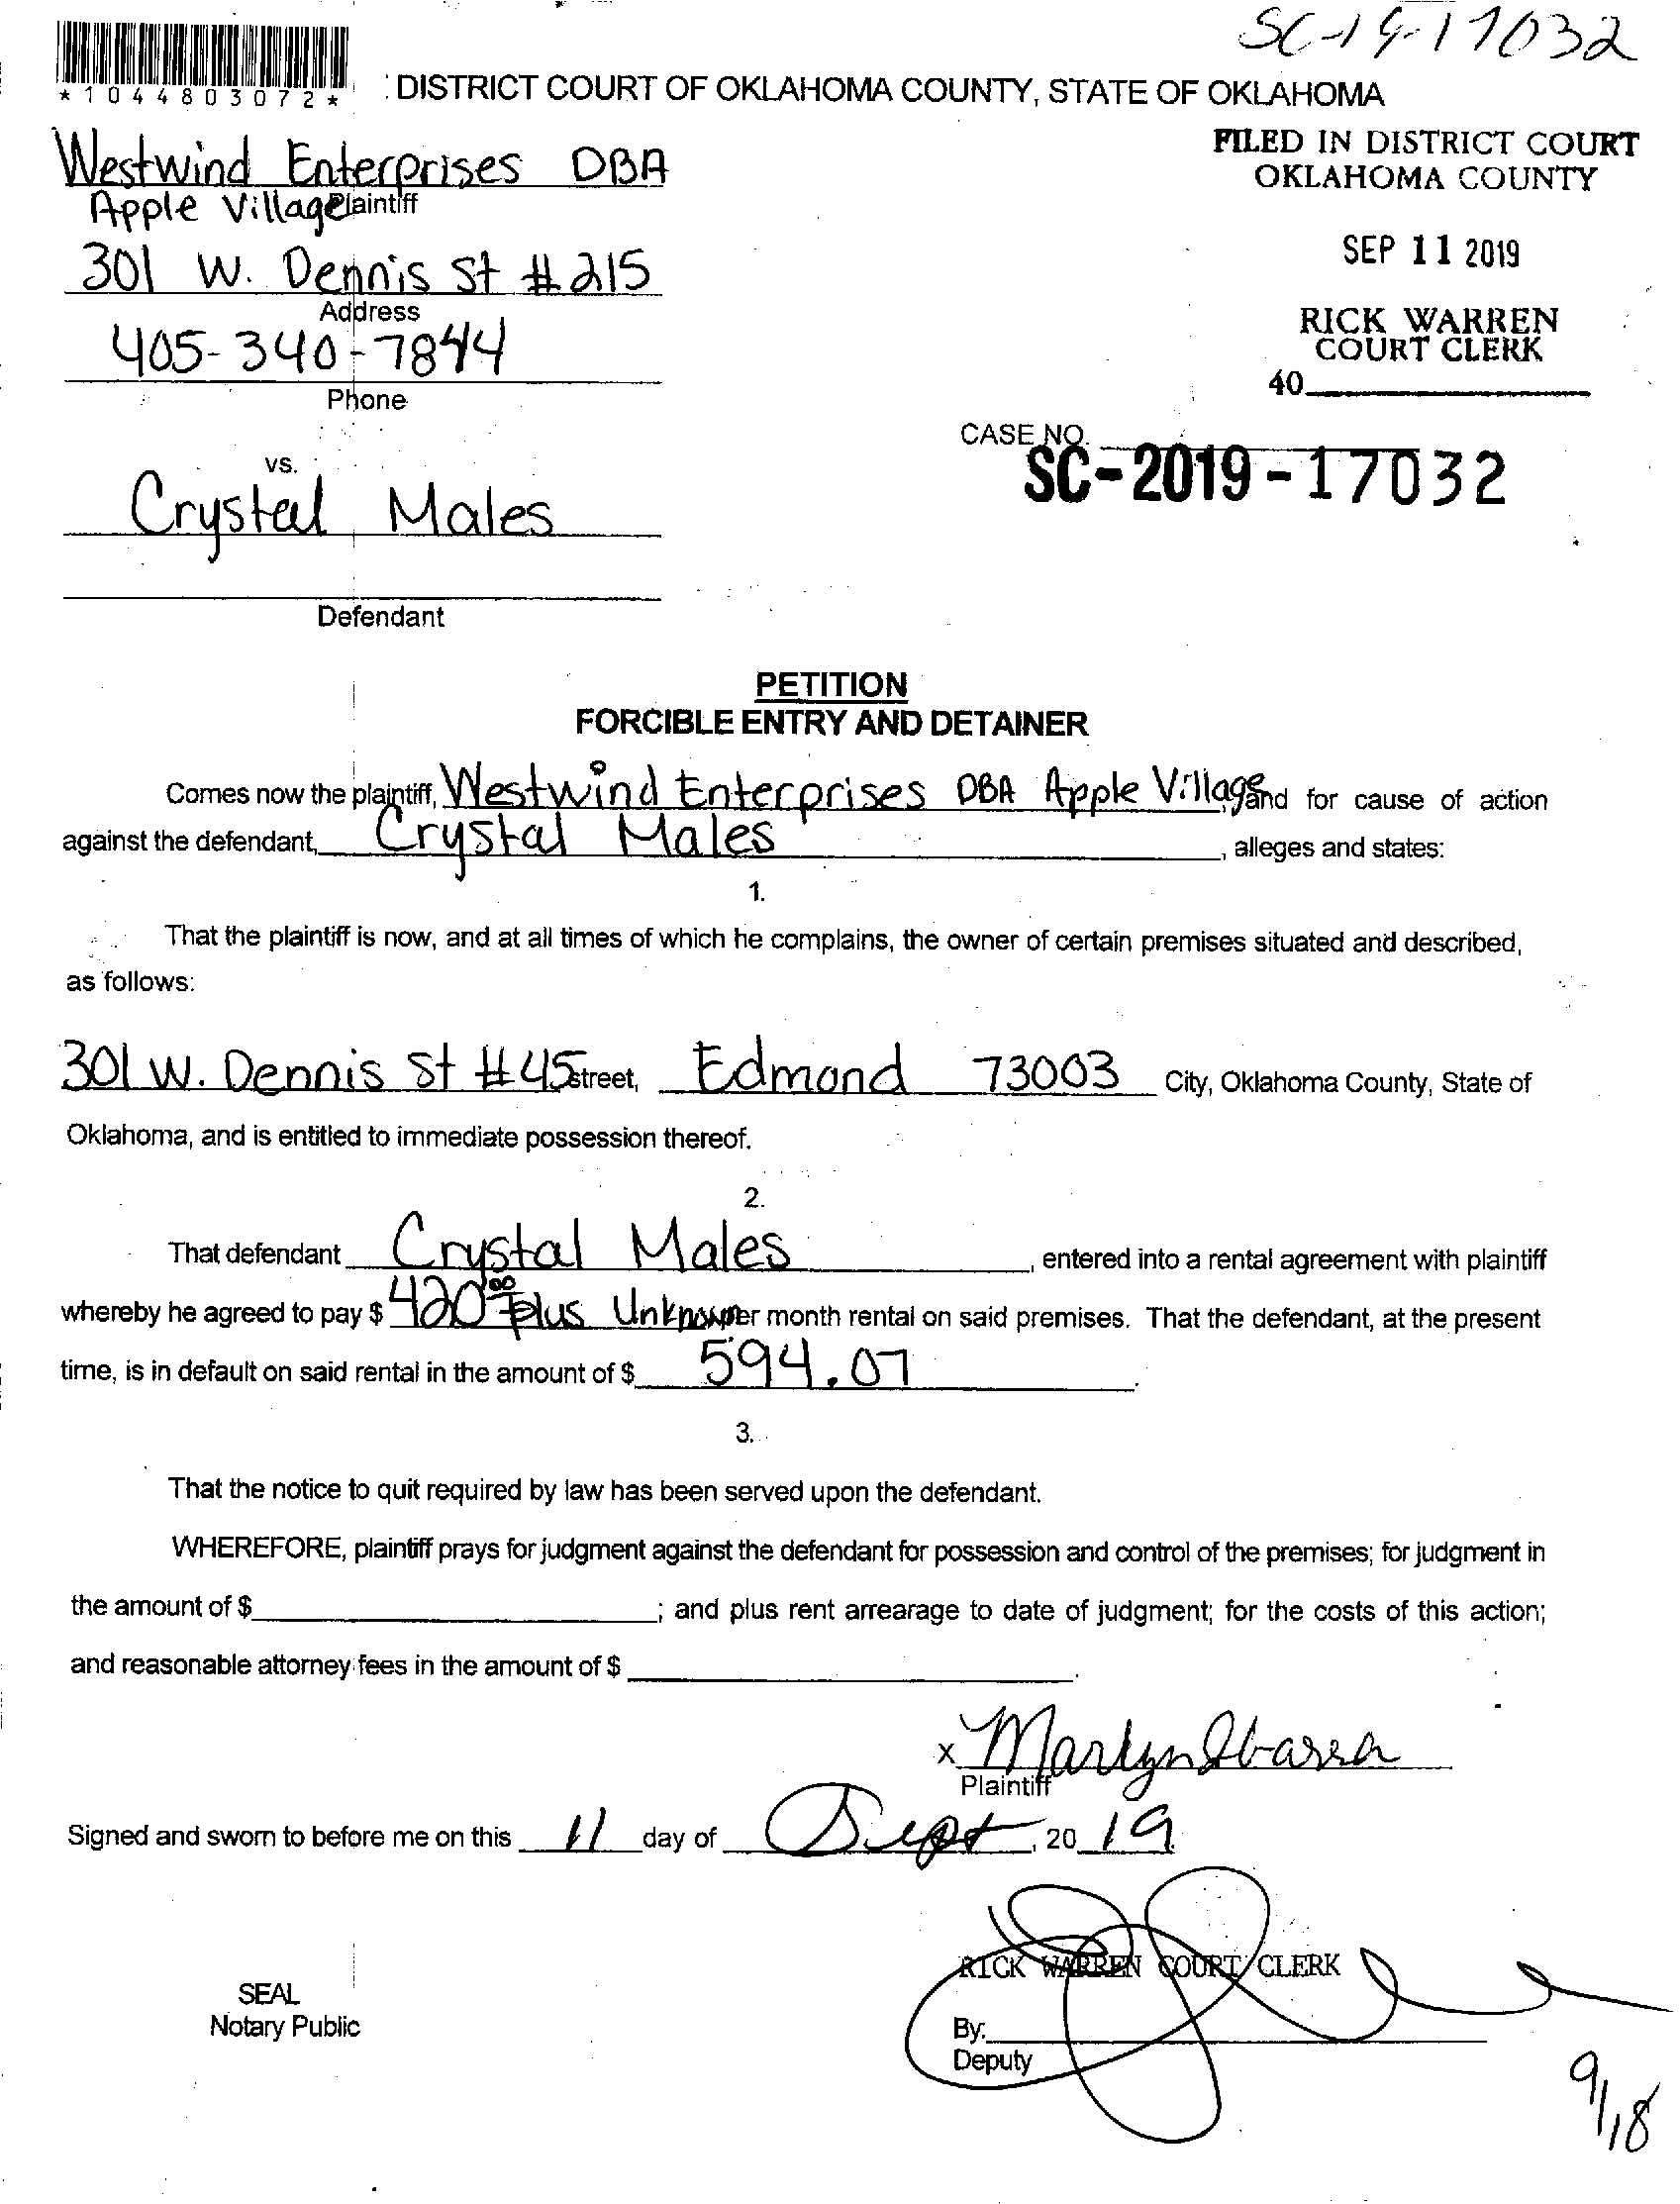 SC-19-17032
*1044803072*
DISTRICT COURT OF OKLAHOMA COUNTY, STATE OF OKLAHOMA
Westwind Enterprises DBA
Apple Village
Plaintiff
301 W. Dennis St #215
Address
405-340-7844
Phone
FILED IN DISTRICT COURT
OKLAHOMA COUNTY
SEP 11 2019
RICK WARREN
COURT CLERK
40
CASE NO.
SC-2019-17032
vs.
Crystal Males
Defendant
PETITION
FORCIBLE ENTRY AND DETAINER
Comes now the plaintiff, Westwind Enterprises DBA Apple Village and for cause of action
against the defendant, Crystal Males, alleges and states:
1.
That the plaintiff is now, and at all times of which he complains, the owner of certain premises situated and described,
as follows:
301 W. Dennis St #45 street, Edmond 73003 City, Oklahoma County, State of
Oklahoma, and is entitled to immediate possession thereof.
2.
That defendant Crystal Males, entered into a rental agreement with plaintiff
whereby he agreed to pay $ 420.00 Plus Unknown per month rental on said premises. That the defendant, at the present
time, is in default on said rental in the amount of $ 594.07.
3.
That the notice to quit required by law has been served upon the defendant.
WHEREFORE, plaintiff prays for judgment against the defendant for possession and control of the premises; for judgment in
the amount of $ ; and plus rent arrearage to date of judgment; for the costs of this action;
and reasonable attorney fees in the amount of $ .
x Marlyn Ibarra
Plaintiff
Signed and sworn to before me on this 11 day of Sept, 20 19.
RICK WARREN COURT CLERK
SEAL
Notary Public
By:
Deputy
9/18